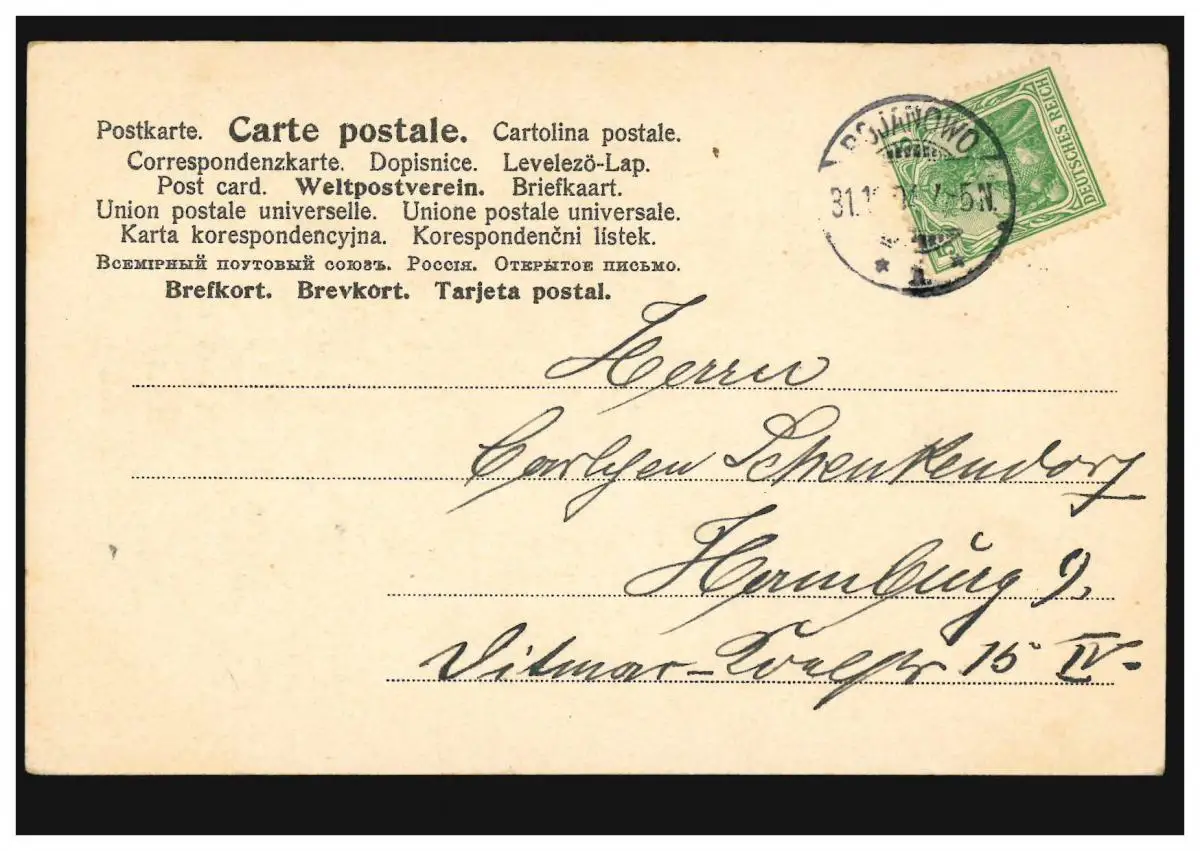 Postkarte. Carte postale. Cartolina postale.
Correspondenzkarte. Dopisnice. Levelező-Lap.
Post card. Weltpostverein. Briefkaart.
Union postale universelle. Unione postale universale.
Karta korespondencyjna. Korespondenčni listek.
Всемірный поутовый союзъ. Россія. Открытое письмо.
Brefkort. Brevkort. Tarjeta postal.
BOJANOWO
5 N.
DEUTSCHES REICH
Herrn
Schenkendorf
Hamburg 9,
Ditmar-Koelstr 15 IV.